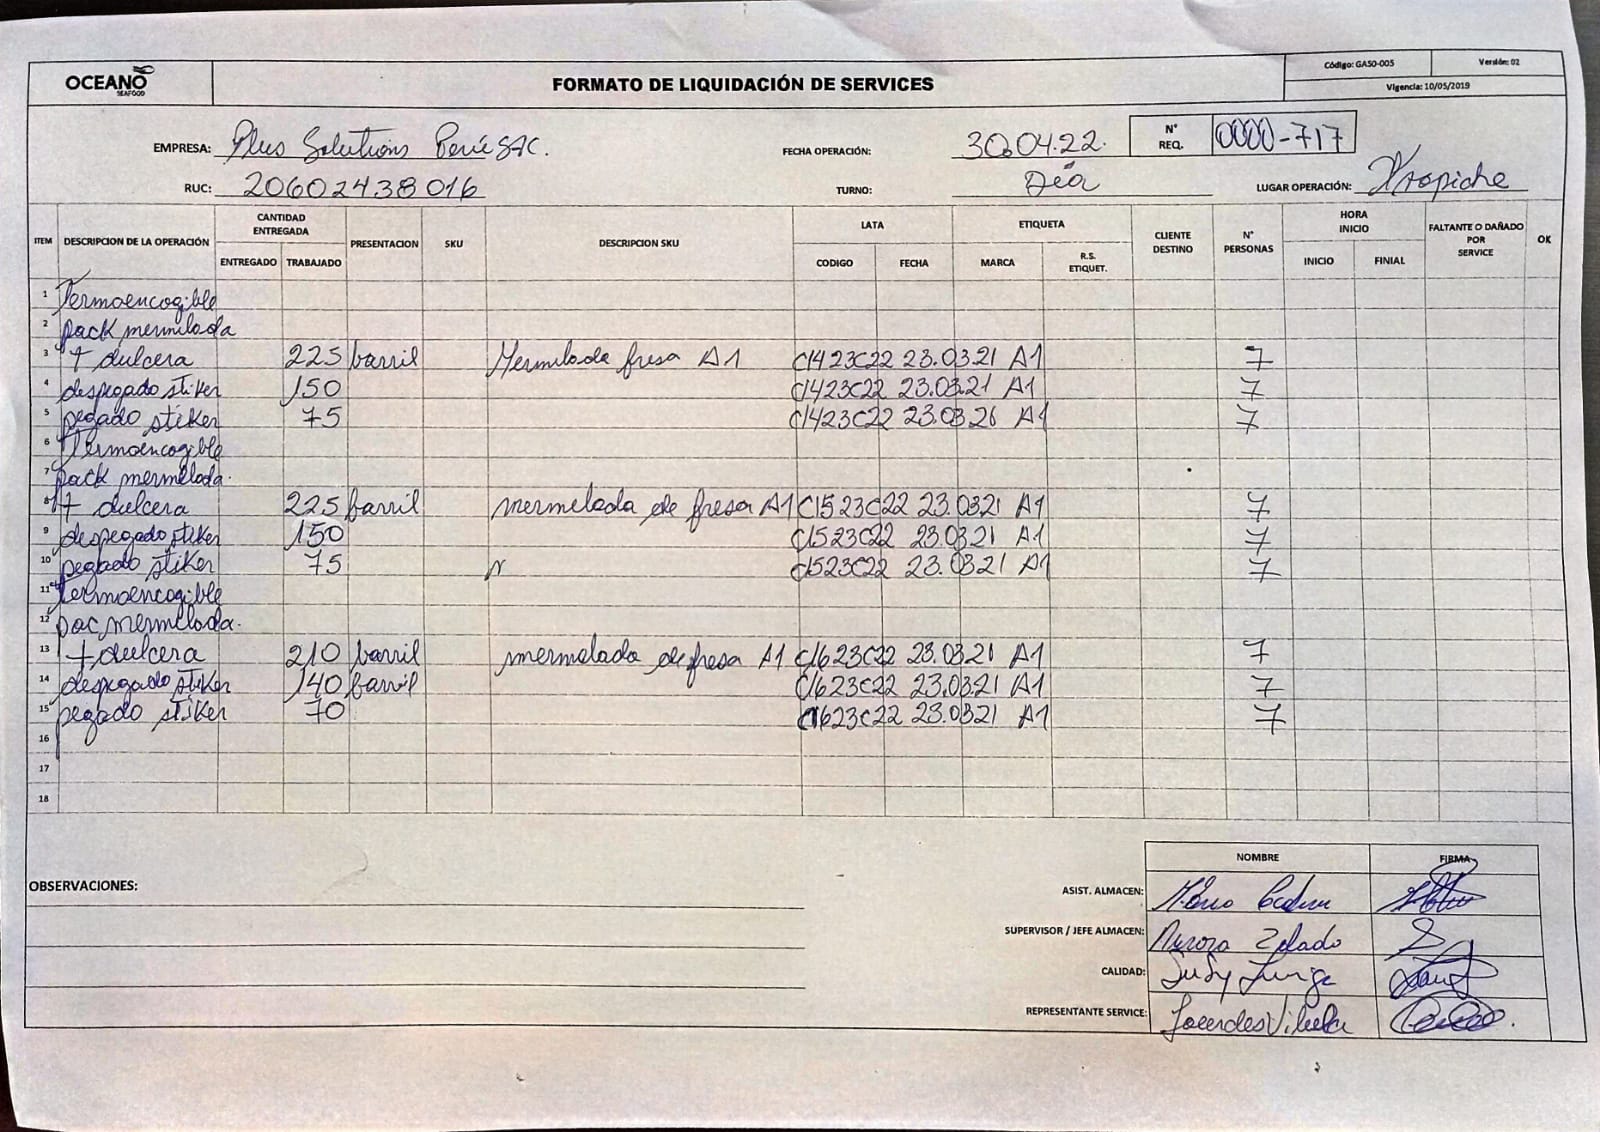 OCEANO
SEAFOOD
FORMATO DE LIQUIDACIÓN DE SERVICES
Código: GA50-005 Versión: 02
Vigencia: 10/05/2019
EMPRESA: Plus Solutions Perú SAC. FECHA OPERACIÓN: 30.04.22. N° REQ. 0000-717
RUC: 20602438016 TURNO: Día LUGAR OPERACIÓN: Xtropiche
ITEM DESCRIPCION DE LA OPERACIÓN CANTIDAD ENTREGADA PRESENTACION SKU DESCRIPCION SKU LATA ETIQUETA CLIENTE DESTINO N° PERSONAS HORA INICIO FALTANTE O DAÑADO POR SERVICE OK
ENTREGADO TRABAJADO CODIGO FECHA MARCA R.S. ETIQUET. INICIO FINIAL
1 Termoencogible
2 pack mermilada
3 + dulcera 225 barril Mermilada fresa A1 C1423C22 23.03.21 A1 7
4 despegado stiker 150 C1423C22 23.03.21 A1 7
5 pegado stiker 75 C1423C22 23.03.21 A1 7
6 Termoencogible
7 pack mermelada.
8 + dulcera 225 barril mermelada de fresa A1 C1523C22 23.03.21 A1 7
9 despegado stiker 150 C1523C22 23.03.21 A1 7
10 pegado stiker 75 C1523C22 23.03.21 A1 7
11 termoencogible
12 pac mermelada.
13 + dulcera 210 barril mermelada de fresa A1 C1623C22 23.03.21 A1 7
14 despegado stiker 140 barril C1623C22 23.03.21 A1 7
15 pegado stiker 70 C1623C22 23.03.21 A1 7
16
17
18
NOMBRE FIRMA
OBSERVACIONES:
ASIST. ALMACEN:
SUPERVISOR / JEFE ALMACEN: Aurora Zelado
CALIDAD: Judy
REPRESENTANTE SERVICE: Lourdes Vilela